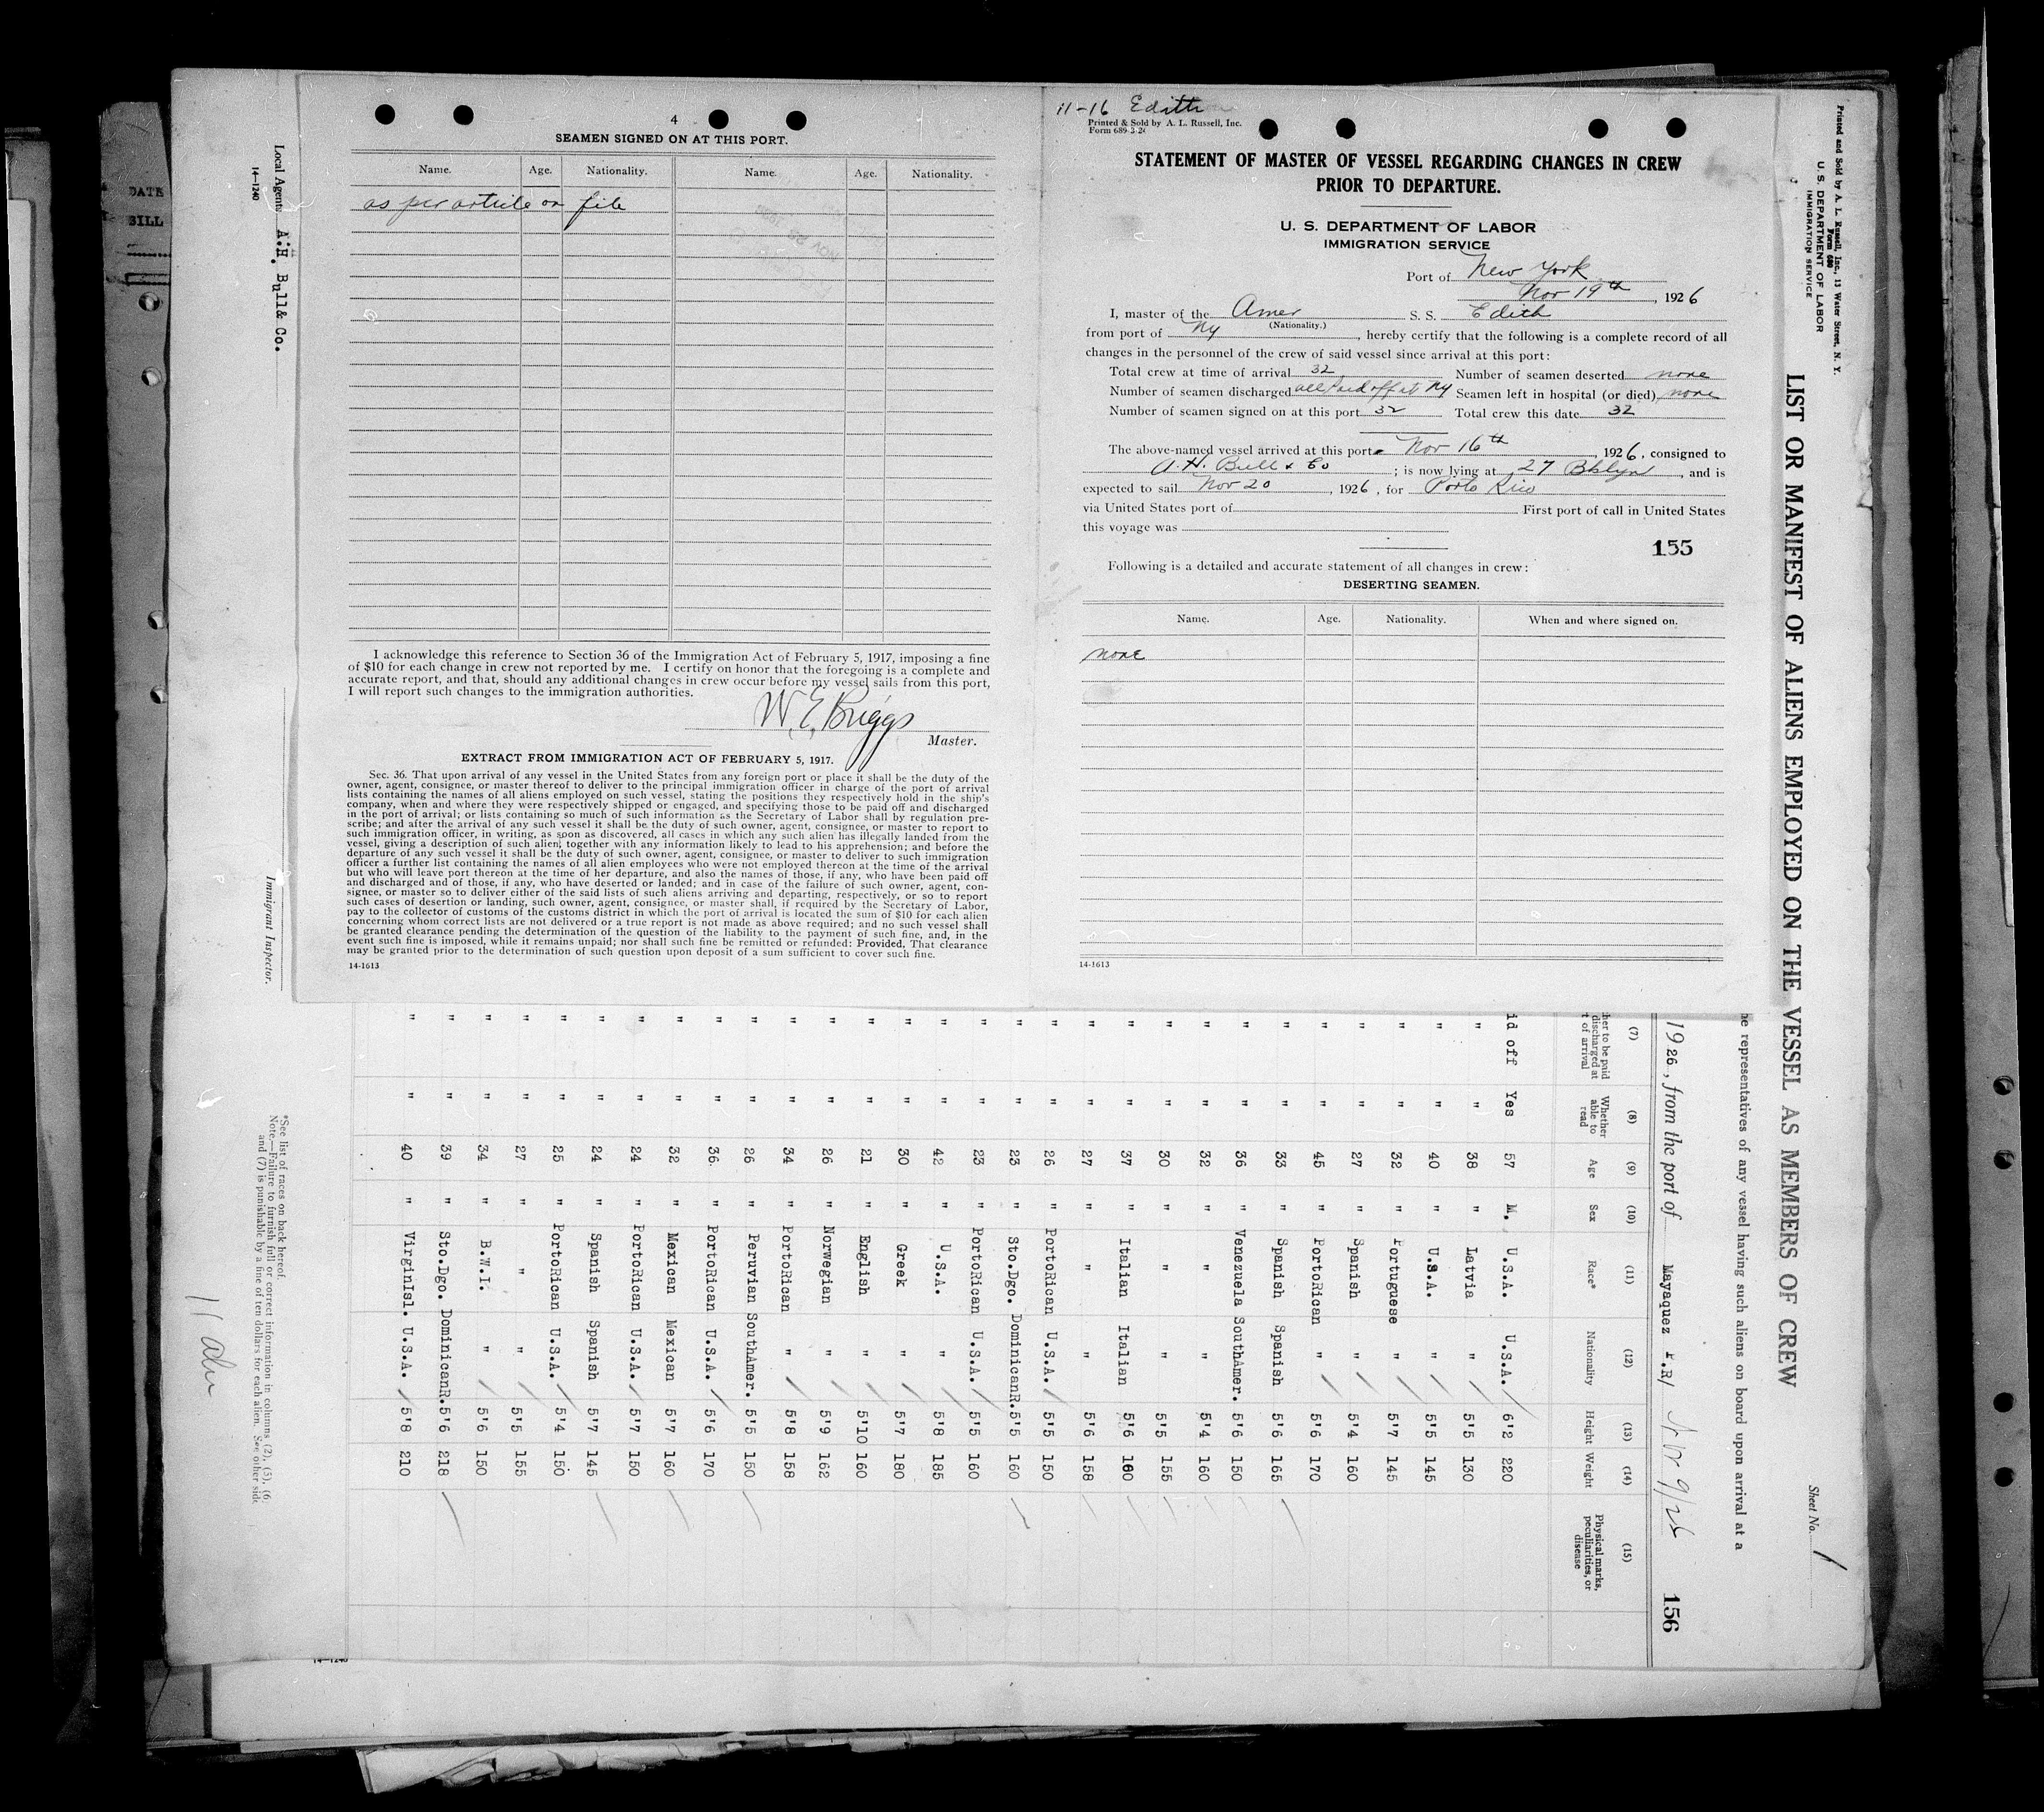 4
SEAMEN SIGNED ON AT THIS PORT.
Name. Age. Nationality. Name. Age. Nationality.
as per article on file
I acknowledge this reference to Section 36 of the Immigration Act of February 5, 1917, imposing a fine
of $10 for each change in crew not reported by me. I certify on honor that the foregoing is a complete and
accurate report, and that, should any additional changes in crew occur before my vessel sails from this port,
I will report such changes to the immigration authorities.
W. E. Briggs
Master.
EXTRACT FROM IMMIGRATION ACT OF FEBRUARY 5, 1917.
Sec. 36. That upon arrival of any vessel in the United States from any foreign port or place it shall be the duty of the
owner, agent, consignee, or master thereof to deliver to the principal immigration officer in charge of the port of arrival
lists containing the names of all aliens employed on such vessel, stating the positions they respectively hold in the ship's
company, when and where they were respectively shipped or engaged, and specifying those to be paid off and discharged
in the port of arrival; or lists containing so much of such information as the Secretary of Labor shall by regulation pre-
scribe; and after the arrival of any such vessel it shall be the duty of such owner, agent, consignee, or master to report to
such immigration officer, in writing, as soon as discovered, all cases in which any such alien has illegally landed from the
vessel, giving a description of such alien, together with any information likely to lead to his apprehension; and before the
departure of any such vessel it shall be the duty of such owner, agent, consignee, or master to deliver to such immigration
officer a further list containing the names of all alien employees who were not employed thereon at the time of the arrival
but who will leave port thereon at the time of her departure, and also the names of those, if any, who have been paid off
and discharged and of those, if any, who have deserted or landed; and in case of the failure of such owner, agent, con-
signee, or master so to deliver either of the said lists of such aliens arriving and departing, respectively, or so to report
such cases of desertion or landing, such owner, agent, consignee, or master shall, if required by the Secretary of Labor,
pay to the collector of customs of the customs district in which the port of arrival is located the sum of $10 for each alien
concerning whom correct lists are not delivered or a true report is not made as above required; and no such vessel shall
be granted clearance pending the determination of the question of the liability to the payment of such fine, and, in the
event such fine is imposed, while it remains unpaid; nor shall such fine be remitted or refunded: Provided, That clearance
may be granted prior to the determination of such question upon deposit of a sum sufficient to cover such fine.
14-1613
11-16 Edith
Printed & Sold by A. L. Russell, Inc.
Form 689
STATEMENT OF MASTER OF VESSEL REGARDING CHANGES IN CREW
PRIOR TO DEPARTURE.
U. S. DEPARTMENT OF LABOR
IMMIGRATION SERVICE
Port of New York
Nov 19th, 1926
I, master of the Amer S. S. Edith
(Nationality.)
from port of Ny, hereby certify that the following is a complete record of all
changes in the personnel of the crew of said vessel since arrival at this port:
Total crew at time of arrival 32 Number of seamen deserted none
Number of seamen discharged all paid off at Ny Seamen left in hospital (or died) none
Number of seamen signed on at this port 32 Total crew this date 32
The above-named vessel arrived at this port Nov 16th, 1926, consigned to
A. H. Bull & Co; is now lying at 27 Bklyn, and is
expected to sail Nov 20, 1926, for Porto Rico
via United States port of First port of call in United States
this voyage was
155
Following is a detailed and accurate statement of all changes in crew:
DESERTING SEAMEN.
Name. Age. Nationality. When and where signed on.
none
14-1613
Printed and Sold by A. L. Russell, Inc., 13 Water Street, N. Y.
Form 680
U. S. DEPARTMENT OF LABOR
IMMIGRATION SERVICE
LIST OR MANIFEST OF ALIENS EMPLOYED ON THE VESSEL AS MEMBERS OF CREW
Sheet No. 1
he representatives of any vessel having such aliens on board upon arrival at a
1926, from the port of Mayaquez P.R/ Nov 9/26 156
(7) (8) (9) (10) (11) (12) (13) (14) (15)
her to be paid discharged at t of arrival Whether able to read Age Sex Race* Nationality Height Weight Physical marks, peculiarities, or disease
id off Yes 57 M. U.S.A. U.S.A. 6'2 220
" " 38 " Latvia " 5'5 130
" " 40 " U.S.A. " 5'5 145
" " 32 " Portuguese " 5'7 145
" " 27 " Spanish " 5'4 160
" " 45 " PortoRican " 5'6 170
" " 33 " Spanish Spanish 5'6 165
" " 36 " Venezuela SouthAmer. 5'6 150
" " 32 " " " 5'4 160
" " 30 " " " 5'5 155
" " 37 " Italian Italian 5'6 160
" " 27 " " " 5'6 158
" " 26 " PortoRican U.S.A. 5'5 150
" " 23 " Sto.Dgo. DominicanR. 5'5 160
" " 23 " PortoRican U.S.A. 5'5 160
" " 42 " U.S.A. " 5'8 185
" " 30 " Greek " 5'7 180
" " 21 " English " 5'10 160
" " 26 " Norwegian " 5'9 162
" " 34 " PortoRican " 5'8 158
" " 26 " Peruvian SouthAmer. 5'5 150
" " 36 " PortoRican U.S.A. 5'6 170
" " 32 " Mexican Mexican 5'7 160
" " 24 " PortoRican U.S.A. 5'7 150
" " 24 " Spanish Spanish 5'7 145
" " 25 " PortoRican U.S.A. 5'4 150
" " 27 " " " 5'5 155
" " 34 " B.W.I. " 5'6 150
" " 39 " Sto.Dgo. DominicanR. 5'6 218
" " 40 " VirginIsl. U.S.A. 5'8 210
Local Agents A.H. Bull & Co.
14-1240
Immigrant Inspector.
*See list of races on back hereof.
Note.—Failure to furnish full or correct information in columns (2), (5), (6
and (7) is punishable by a fine of ten dollars for each alien. See other side
DATE
BILL
14-1240